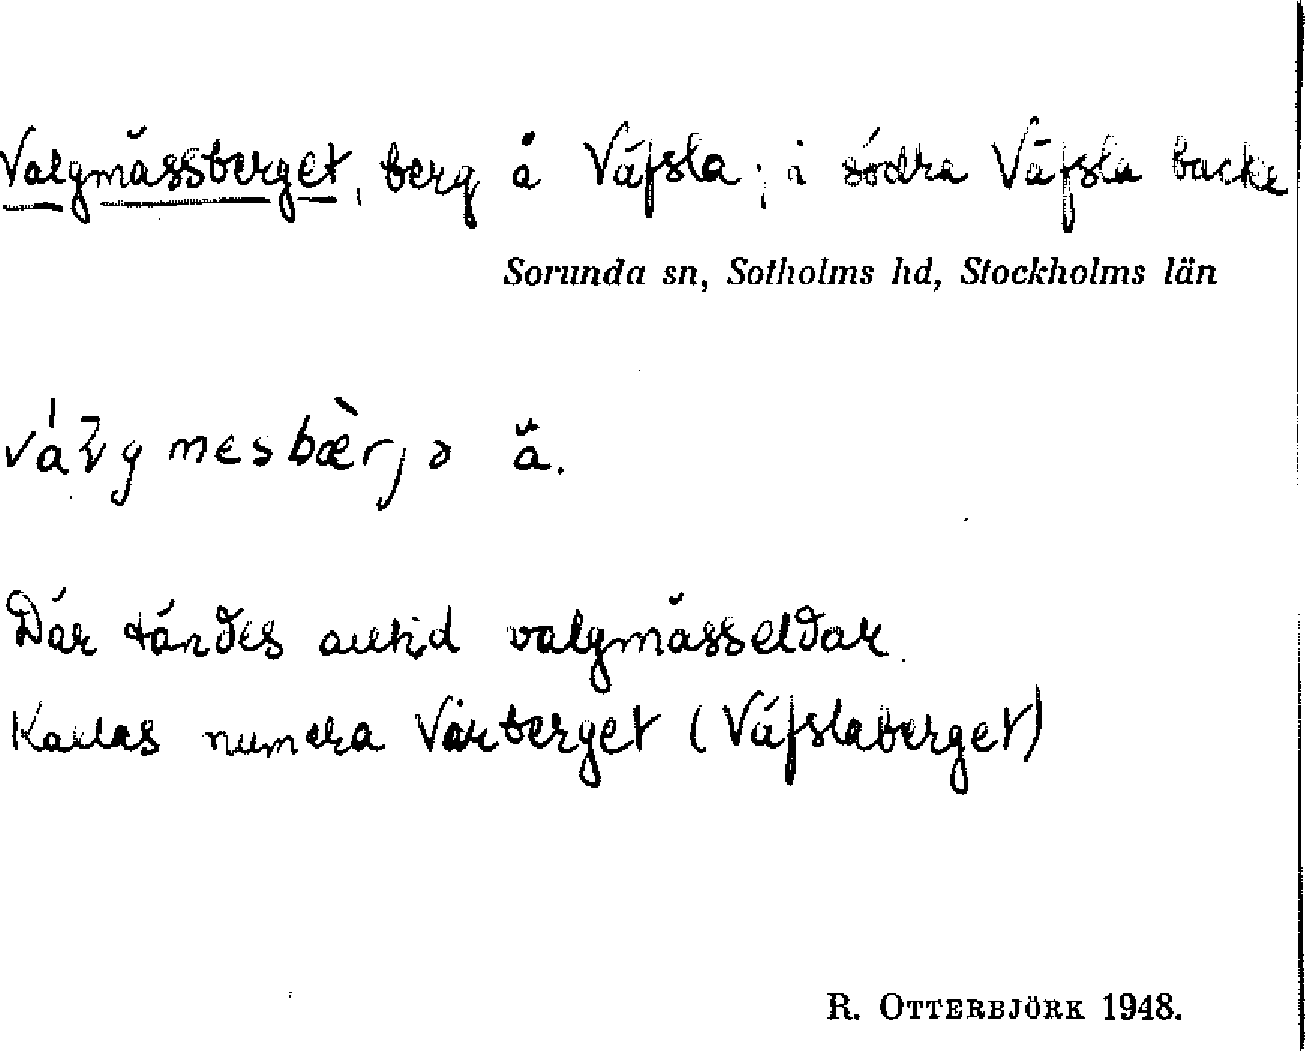 Valgmässberget, berg å Väfsla; å södra Väfsla backe
Sorunda sn, Sotholms hd, Stockholms län
mesbæ̀rjə ä.
Där tändes alltid valgmässeldar.
Kallas numera Vårberget (Väfslaberget)
R. OTTERBJÖRK 1948.